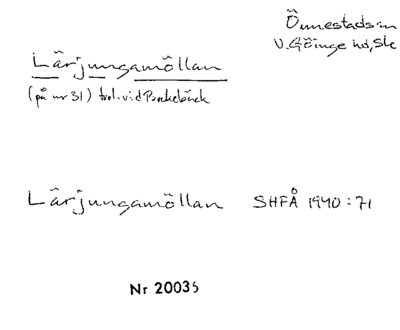 Önnestads sn
V. Göinge hd, Sk
Lärjungamöllan
(på nr 31) trol. vid Prackebäck
Lärjungamöllan SHFÅ 1940:71
Nr 20035